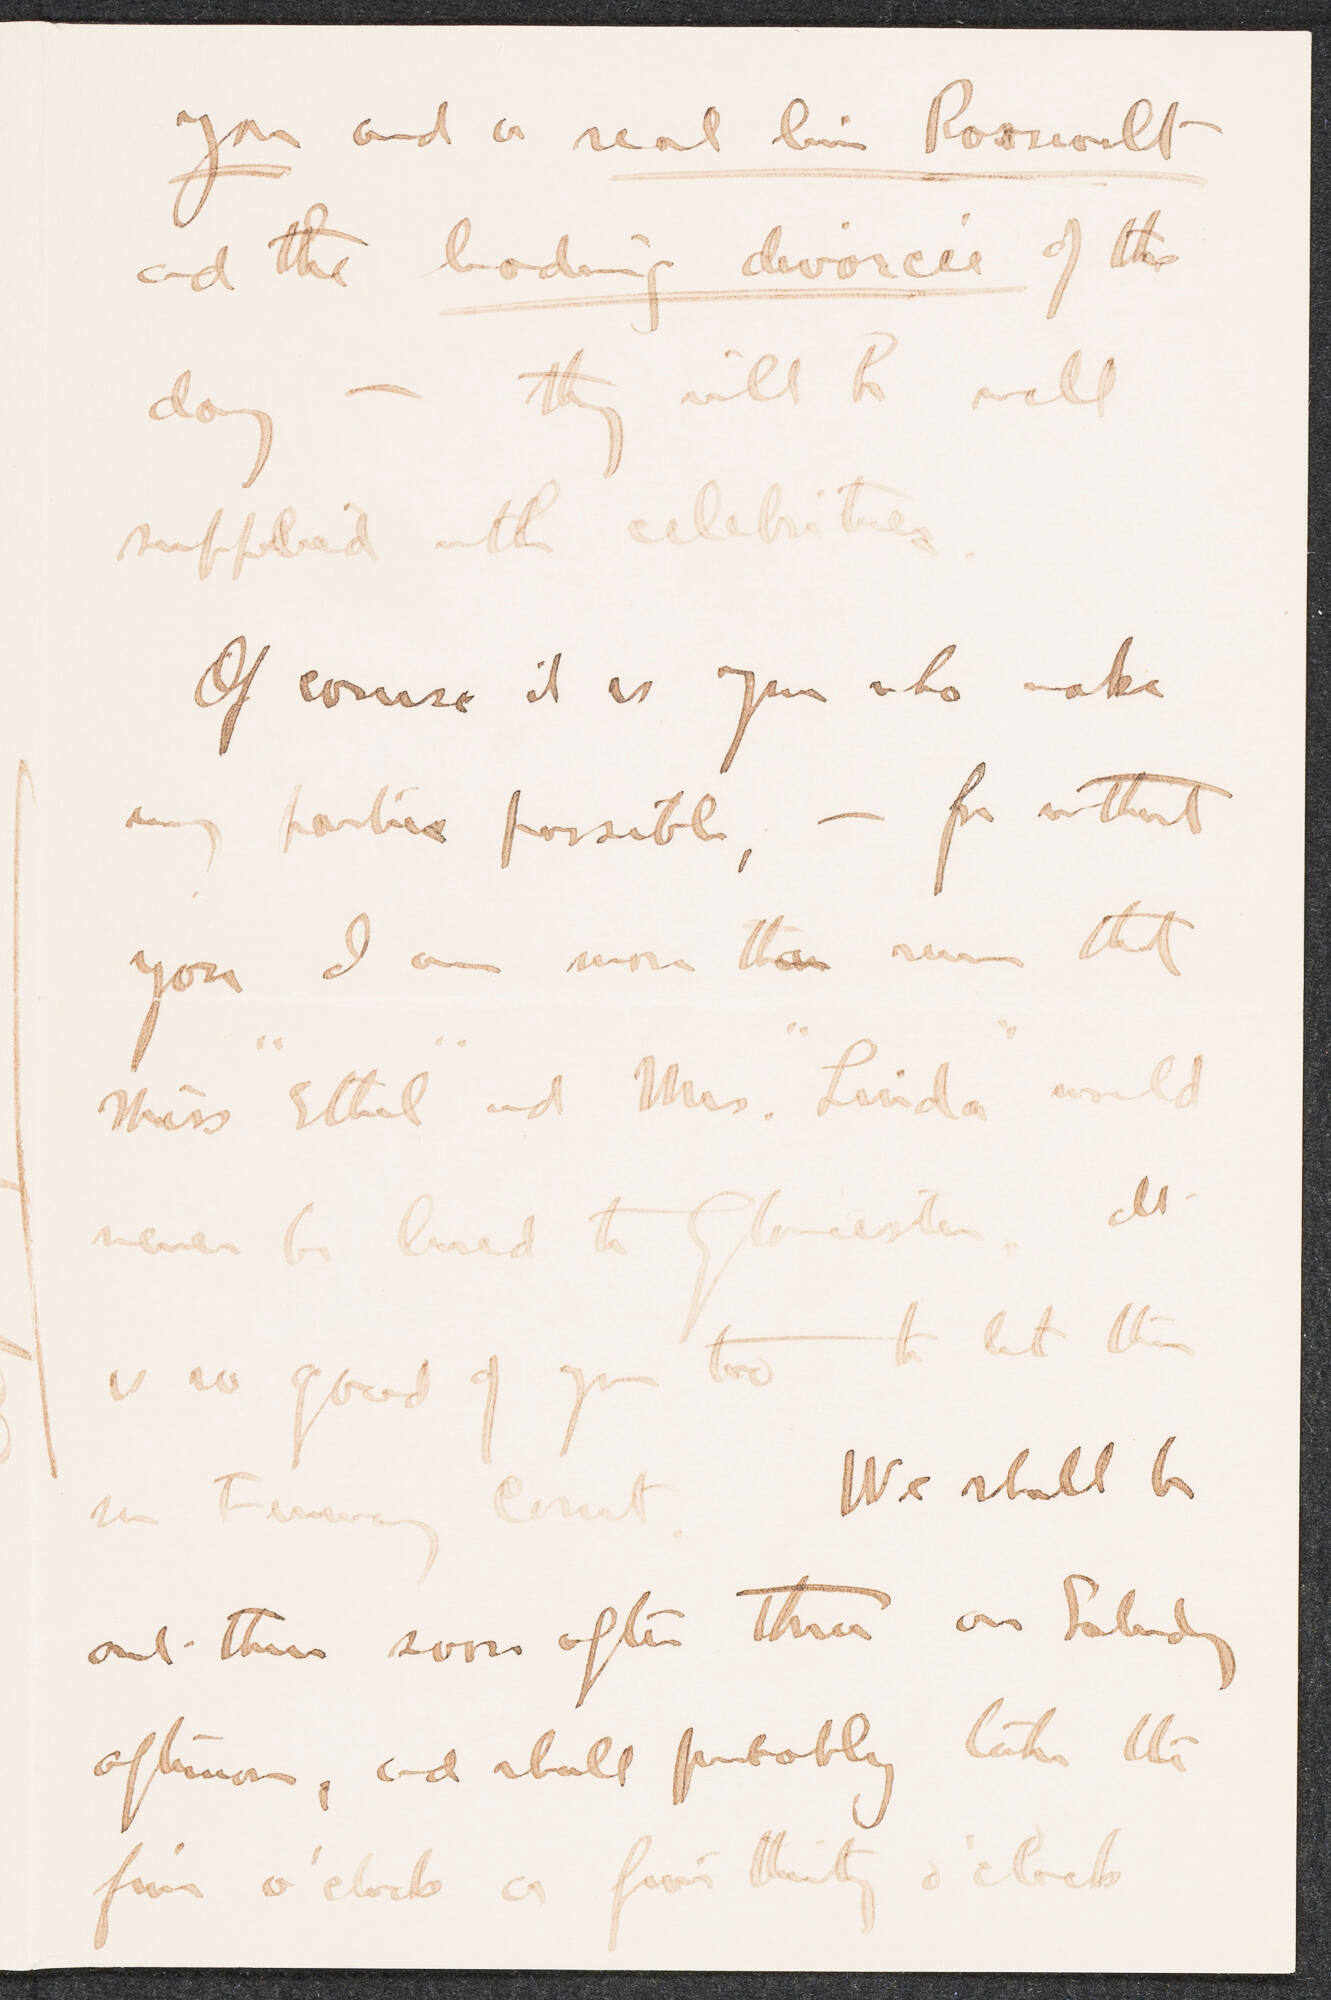 you and a real live Roosevelt
and the leading divorcée of the
day — they will be well
supplied with celebrities.
Of course it is you who make
my parties possible, — for without
you I am more than sure that
Miss "Ethel" and Mrs. "Linda" would
never be lured to Gloucester. It
is so good of you too to let them
see Fenway Court. We shall be
out there soon after three on Saturday
afternoon, and shall probably take the
five o'clock or five thirty o'clock